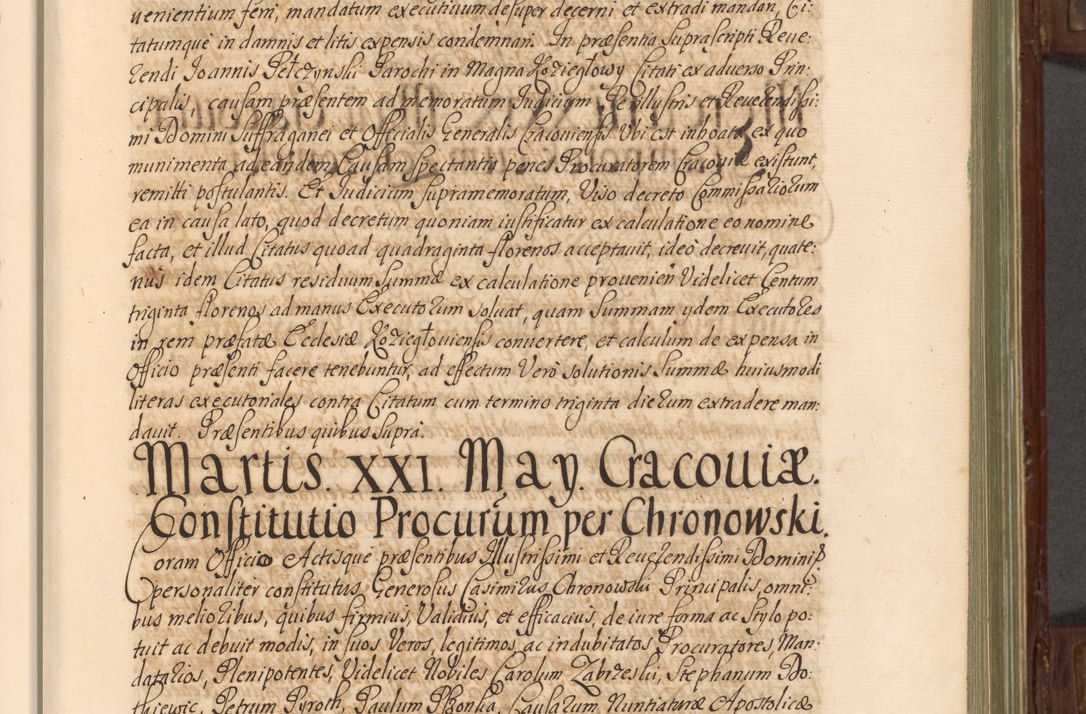 uenientium feni, mandatum executiuum desuper decerni et extradi mandari, Ci-
tatumque in damnis et litis expensis condemnari. In præsentia suprascripti Reue:
rendi Joannis Pełczynski Parochi in Magna Kozięgłowy Citati ex aduerso Prin-
cipalis, causam præsentem ad memoratum Iudicium Perillustris et Reuerendissi-
mi Domini Suffraganei et Officialis Generalis Cracouiensis Vbi est inhoata, ex quo
munimenta ad eandem Causam spectantia penes Procuratorem Cracouiæ existunt,
remitti postulantis. Et Iudicium supramemoratum, Viso decreto Commissariorum
ea in causa lato, quod decretum quoniam iustificatur ex calculatione eo nomine
facta, et illud Citatus quoad quadraginta florenos acceptauit, ideo decreuit, quate:
nus idem Citatus residuum Summæ ex calculatione prouenien Videlicet Centum
triginta florenos ad manus Executorum soluat, quam Summam ydem Executores
in rem præfatæ Ecclesiæ Koziegłouiensis conuertere, et calculum de expensa in
Officio præsenti facere tenebuntur, ad effectum Vero solutionis Summæ huiusmodi
literas executoriales contra Citatum cum termino triginta dierum extradere man:
dauit. Præsentibus quibus supra.
Martis. XXI. May. Cracouiæ.
Constitutio Procurum per Chronowski.
Coram Officio Actisque præsentibus Illustrissimi et Reuerendissimi Domini
personaliter constitutus Generosus Casimirus Chronowski Principalis, omni:
bus melioribus, quibus firmius, Validius, et efficacius, de iure forma ac stylo po:
tuit ac debuit modis, in suos Veros, legitimos ac indubitatos Procuratores, Man-
datarios, Plenipotentes, Videlicet Nobiles Carolum Zabrzeski, Stephanum Do:
thiewic, Petrum Pyroth, Paulum Causarum Nuntiaturæ Apostolicæ